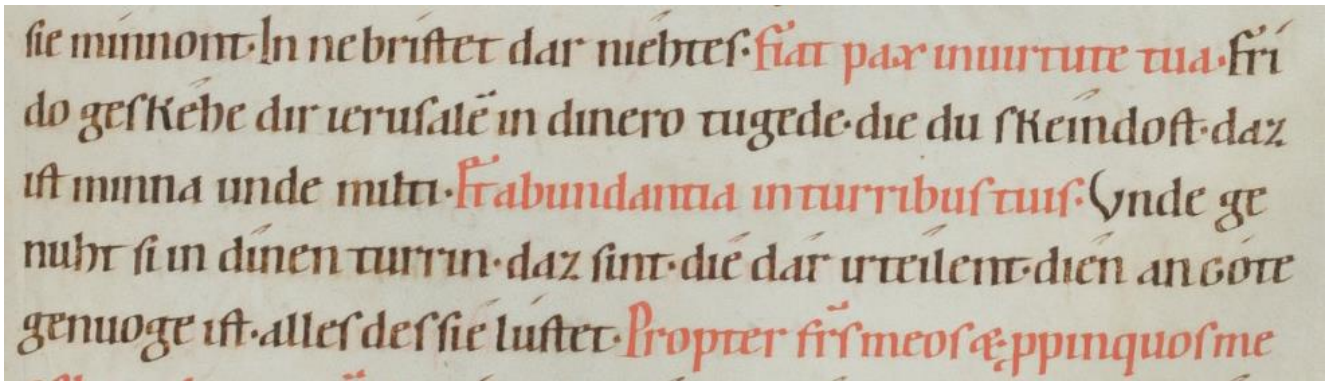 ſie minnont·In nebriſtet dar niêhteſ·fiat pax inuirtute tua·frí
do geſkéhe dir ieruſalē in dinero tugede·die du ſkeíndoſt·daz
iſt minna unde milti·Et abundantia inturribuſ tuiſ·Vnde ge
nuht ſi in dínen turrin·daz ſint·dié dár irteílent·dién an góte
genuoge iſt·alleſ deſ ſie lúſtet·Propter fr̄ſ meoſ &ppinquoſ me